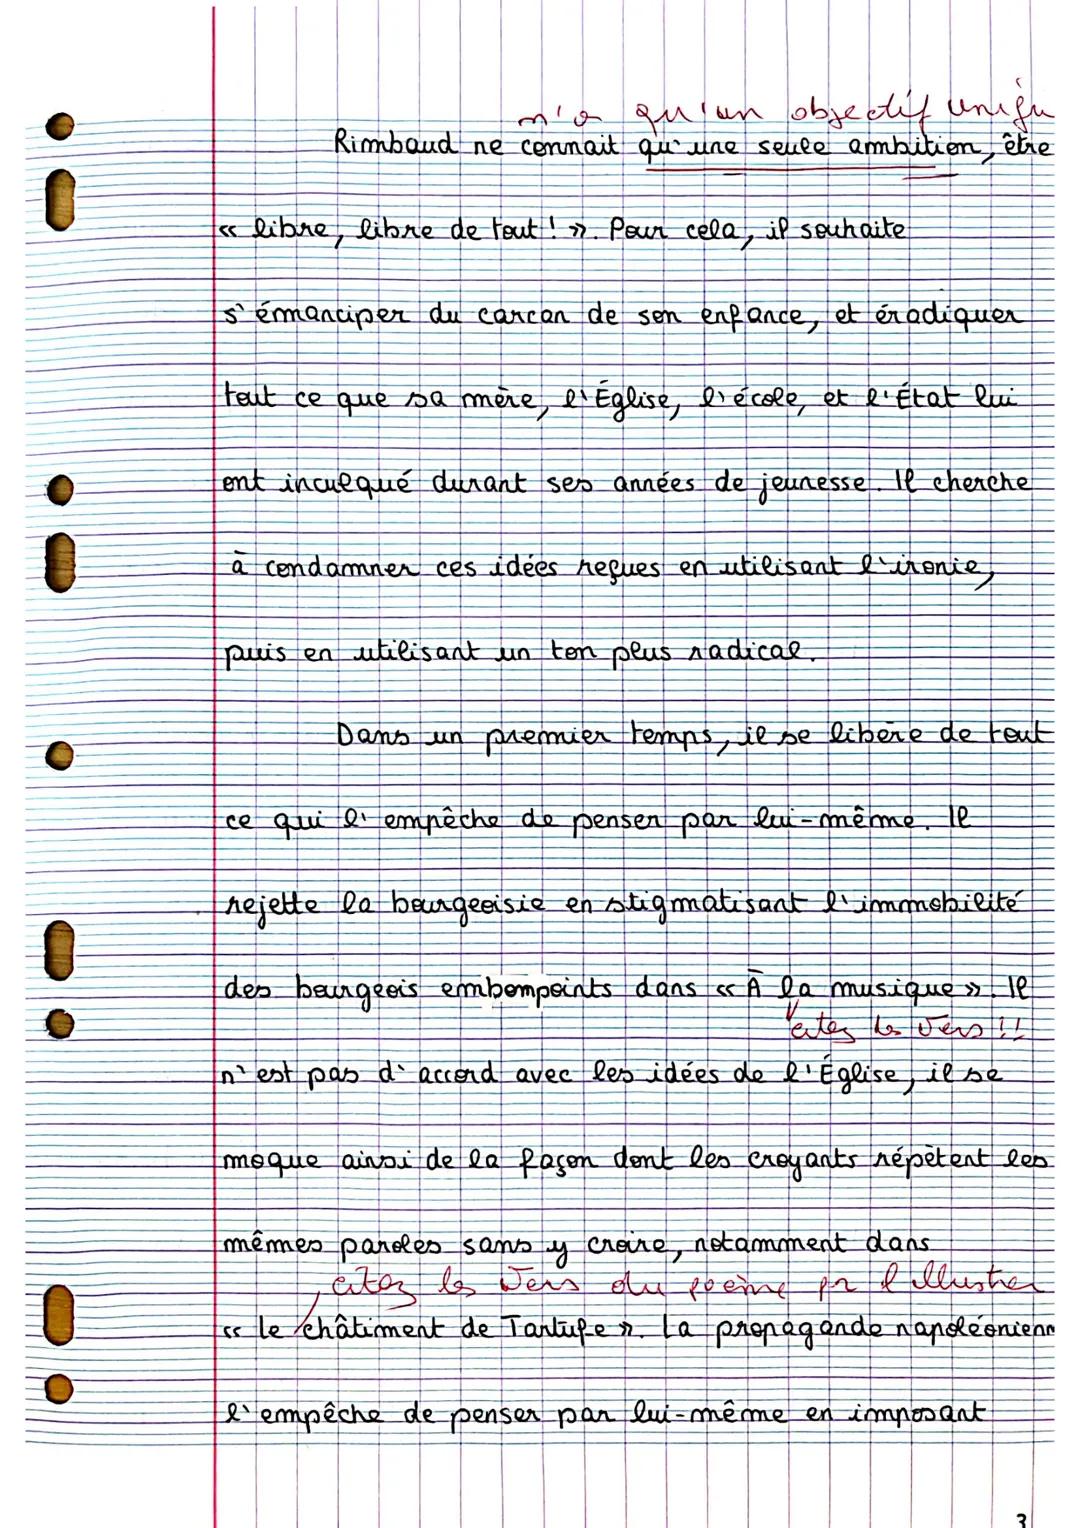 n'a qu'un objectif uniqu
Rimbaud ne connait qu'une seule ambition, être
« libre, libre de tout ! ». Pour cela, il souhaite
s'émanciper du carcan de son enfance, et éradiquer
tout ce que sa mère, l'Église, l'école, et l'État lui
ont inculqué durant ses années de jeunesse. Il cherche
à condamner ces idées reçues en utilisant l'ironie,
puis en utilisant un ton plus radical.
Dans un premier temps, il se libère de tout
ce qui l'empêche de penser par lui-même. Il
rejette la bourgeoisie en stigmatisant l'immobilité
des bourgeois embompoints dans « À la musique ». Il
citez les vers !!
n'est pas d'accord avec les idées de l'Église, il se
moque ainsi de la façon dont les croyants répètent les
mêmes paroles sans y croire, notamment dans
citez les vers du poème pr l'illustrer
« Le châtiment de Tartufe ». La propagande napoléonienn
l'empêche de penser par lui-même en imposant
3